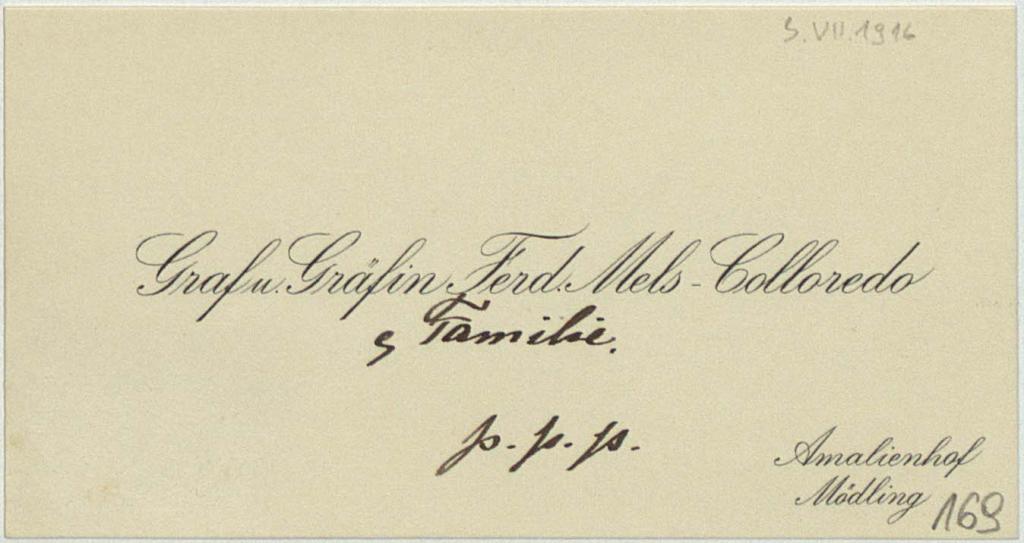 3. VII. 1916
Graf u. Gräfin Ferd. Mels-Colloredo
Familie.
p. p. p.
Amalienhof
Mödling
169